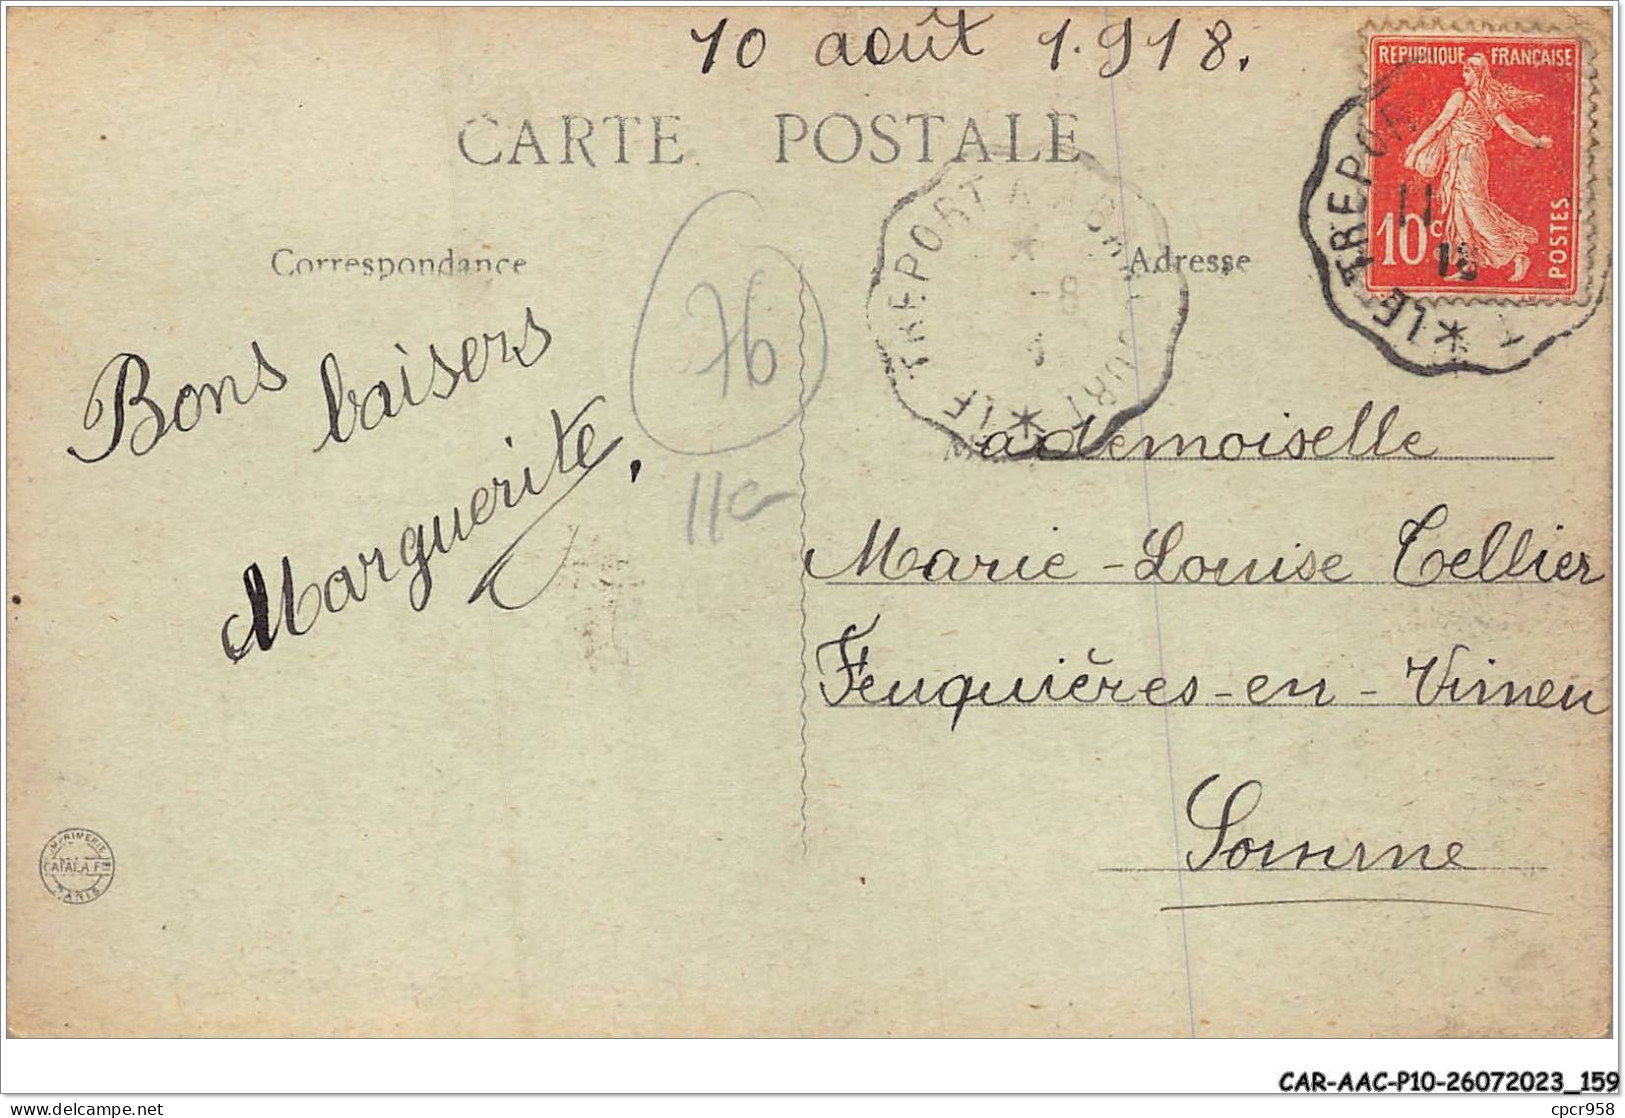 10 août 1.918.
REPUBLIQUE FRANÇAISE
10c
POSTES
CARTE POSTALE
Correspondance
Adresse
LE TREPORT
11
LE TREPORT A ABB
-8
76
11c
Bons baisers
Marguerite.
Mademoiselle
Marie-Louise Tellier
Feuquières-en-Vimeu
Somme
IMPRIMERIE
CATALA Fres
PARIS
CAR-AAC-P10-26072023_159
cpcr958